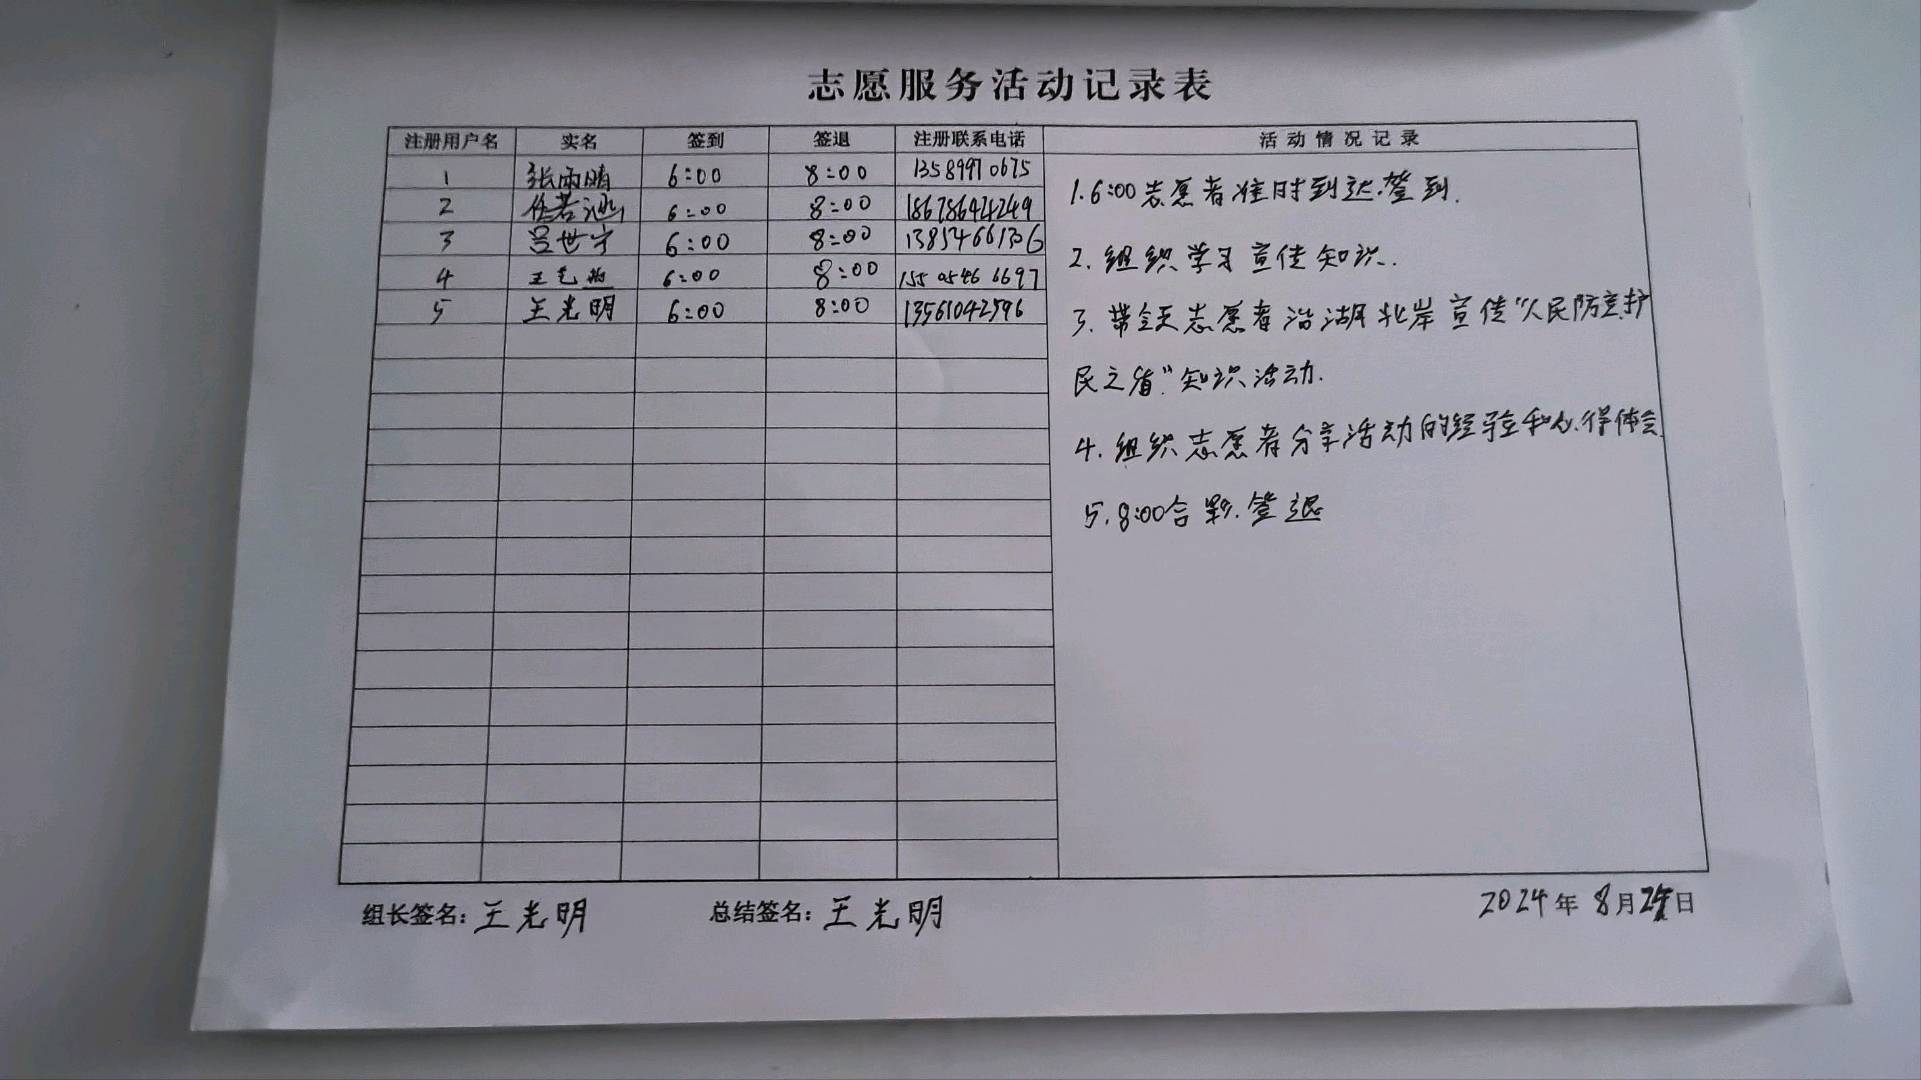 志愿服务活动记录表
注册用户名 实名 签到 签退 注册联系电话 活动情况记录
1 张雨晴 6:00 8:00 13589970675
2 任若涵 6:00 8:00 18678642249
3 吕世宁 6:00 8:00 13854661306
4 王 6:00 8:00 155 0546 6697
5 王光明 6:00 8:00 13561042596
1.6:00志愿者准时到达.签到.
2.组织学习宣传知识.
3.带领志愿者沿湖北岸宣传“人民防空.护
民之盾”知识活动.
4.组织志愿者分享活动的经验和心得体会.
5.8:00合影.签退
组长签名:王光明 总结签名:王光明 2024年8月日